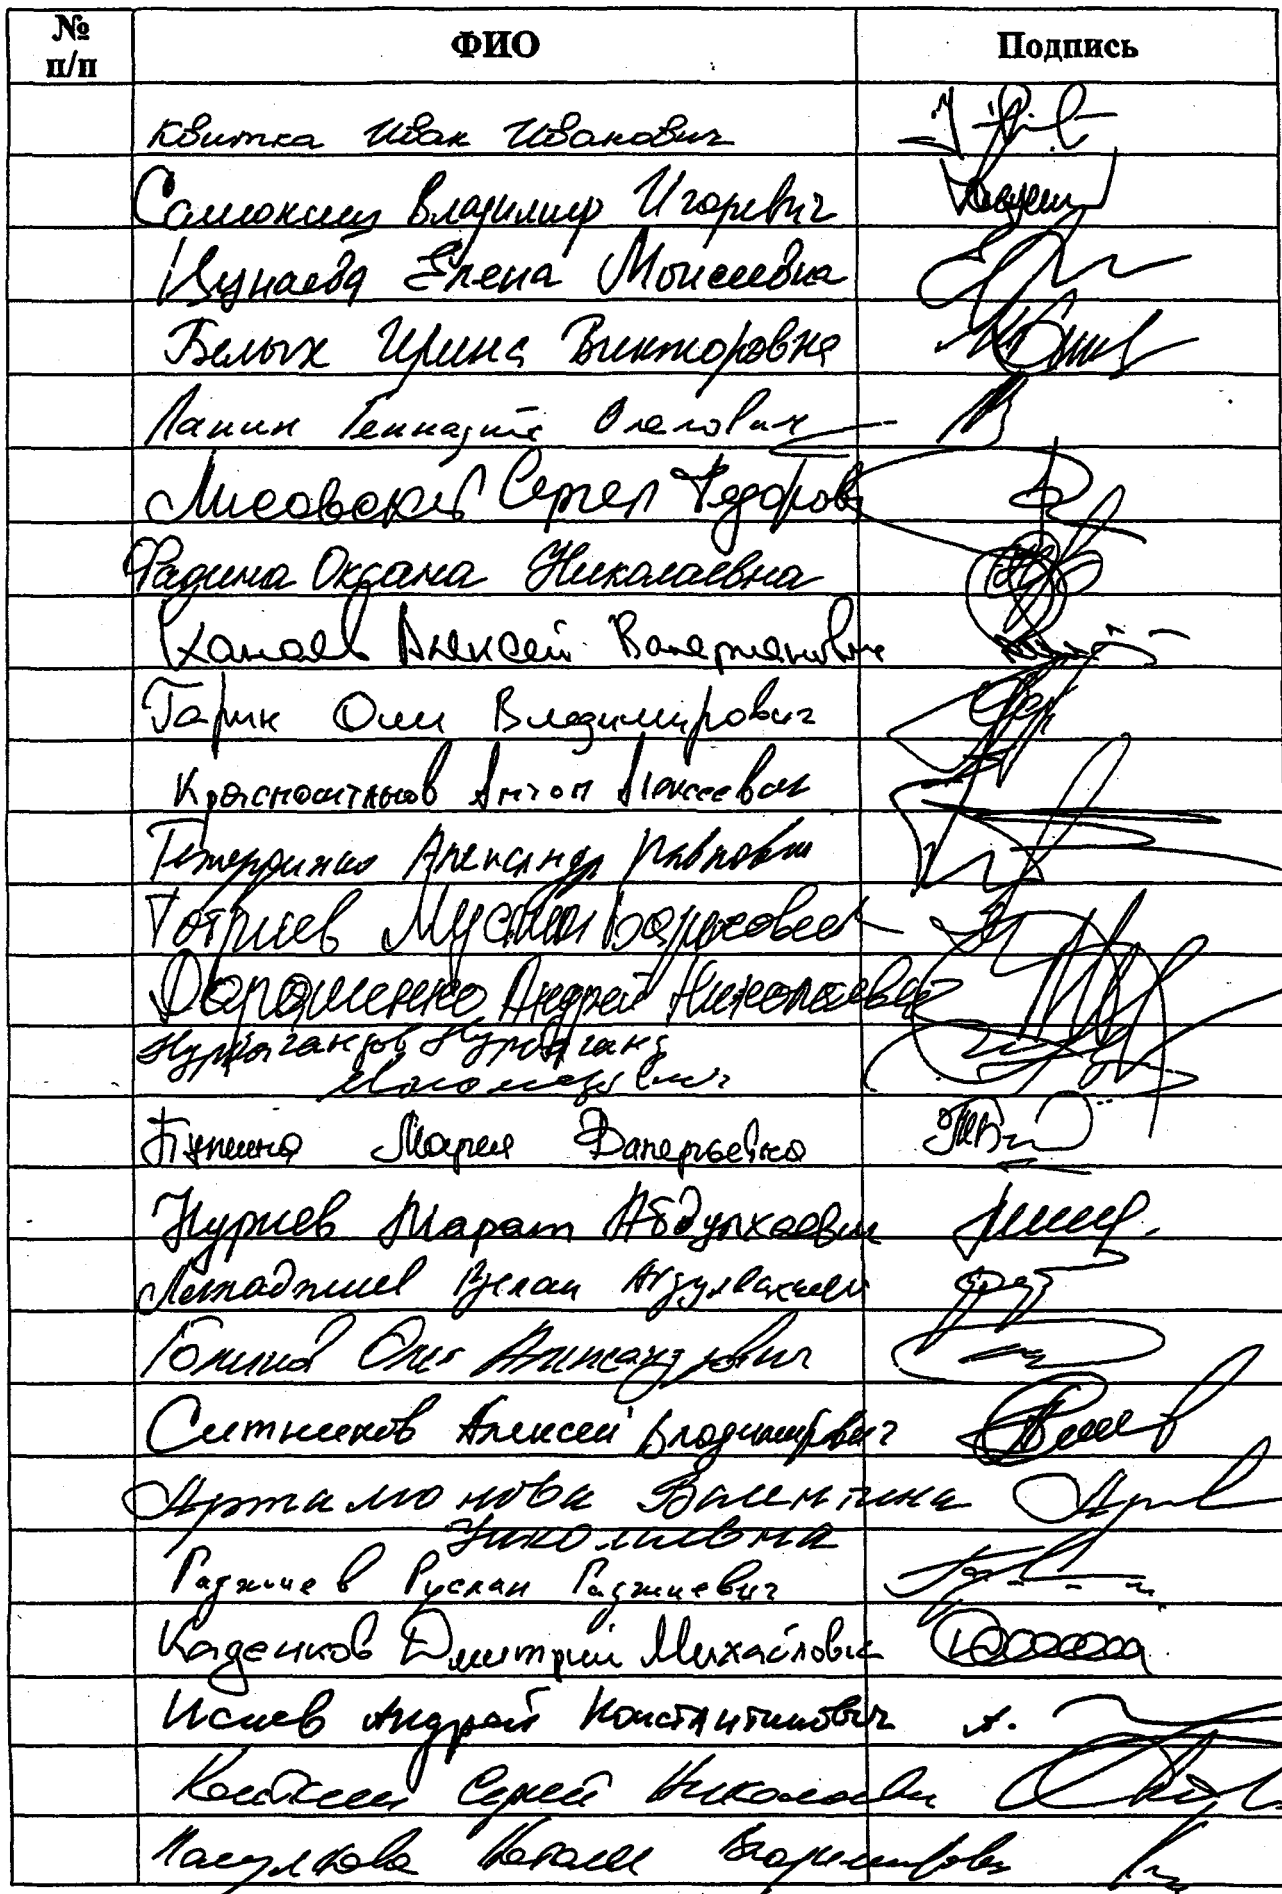 № п/п ФИО Подпись
Квитка Иван Иванович
Самокиш Владимир Игоревич
Цунаева Елена Моисеевна
Белых Ирина Викторовна
Лапин Геннадий Олегович
Лисовский Сергей Федоров
Фадина Оксана Николаевна
Канаев Алексей Валерианович
Гарин Олег Владимирович
Красноштанов Антон Алексеевич
Тетердинко Александр Павлович
Тотриев Муслим Барисович
Дорошенко Андрей Николаевич
Нурбагандов Нурбаганд
Магомедович
Бутина Мария Валерьевна
Нуриев Марат Абдулхаевич
Лечхаджиев Руслан Абдулвахаевич
Голиков Олег Александрович
Ситников Алексей Владимирович
Артамонова Валентина
Николаевна
Гаджиев Руслан Гаджиевич
Каденков Дмитрий Михайлович
Исаев Андрей Константинович
Колткин Сергей Николаевич
Пасулкова Наталья Владимировна